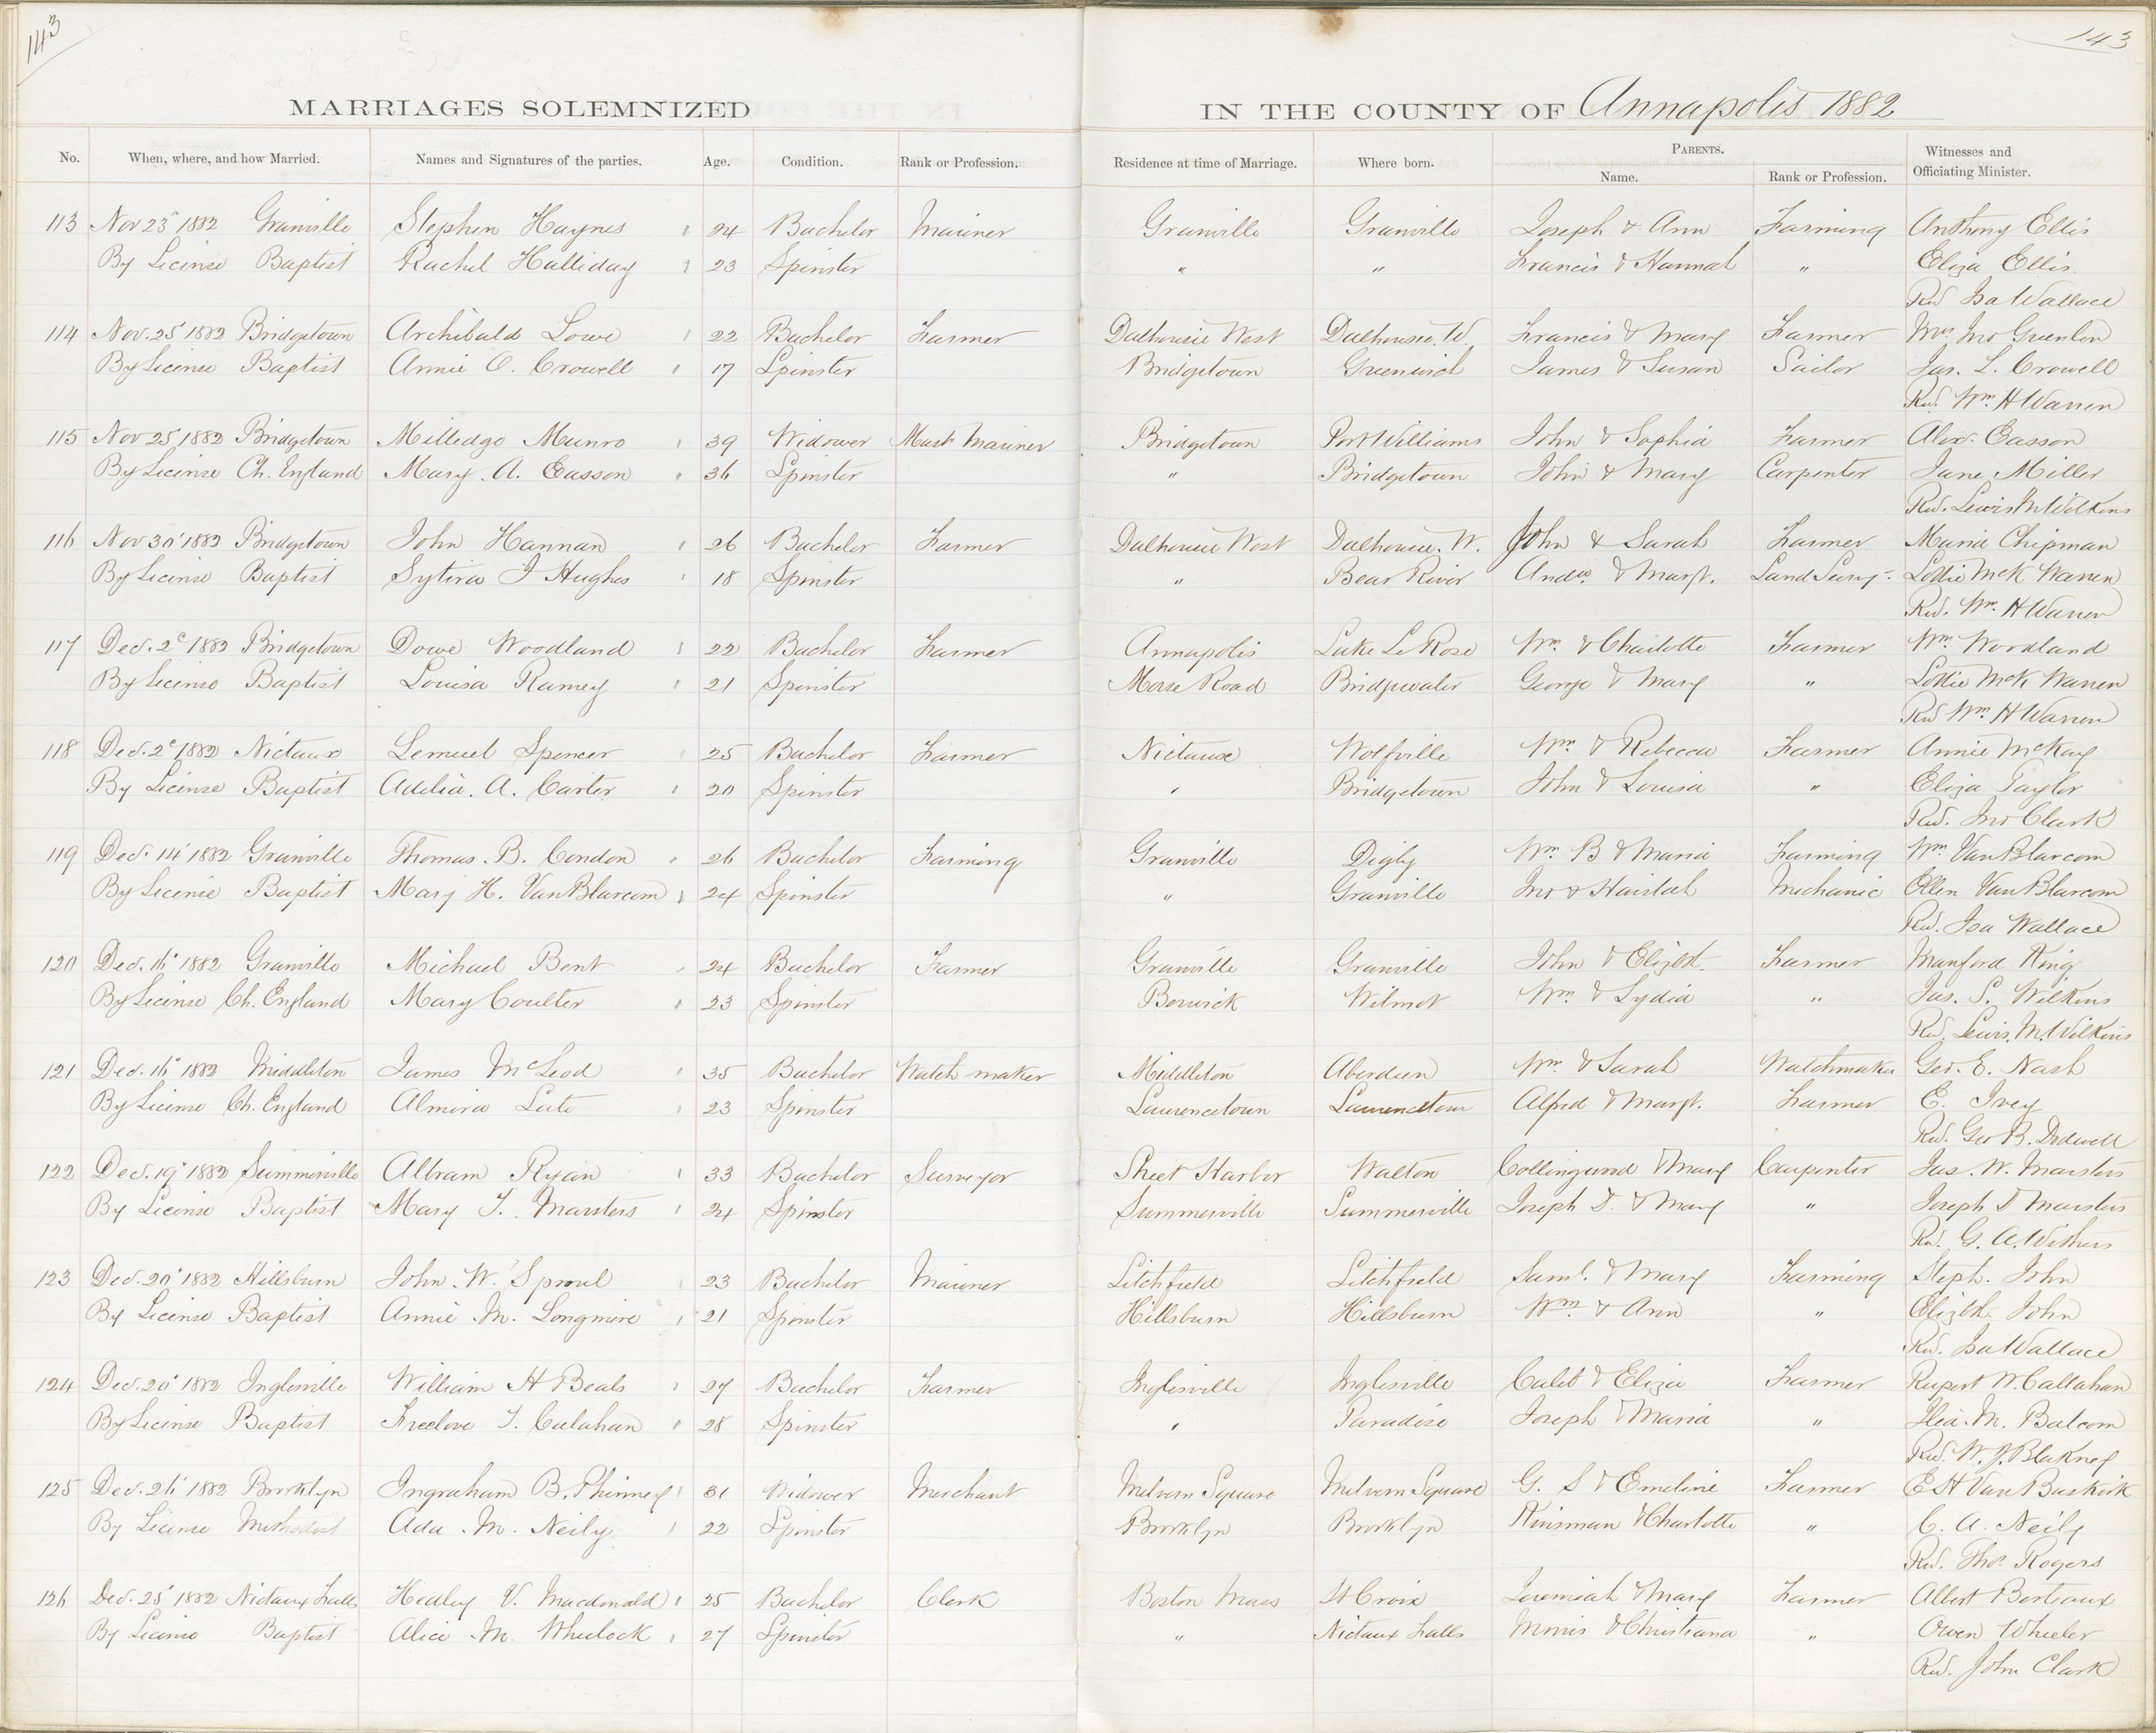 143
143
MARRIAGES SOLEMNIZED IN THE COUNTY OF Annapolis 1882
No. When, where, and how Married. Names and Signatures of the parties. Age. Condition. Rank or Profession. Residence at time of Marriage. Where born. PARENTS. Name. Rank or Profession. Witnesses and Officiating Minister.
113 Nov 23 1882 Granville Stephen Haynes 24 Bachelor Mariner Granville Granville Joseph & Ann Farming Anthony Ellis
By License Baptist Rachel Halliday 23 Spinster " " Francis & Hannah " Eliza Ellis
Rev Isa Wallace
114 Nov. 25 1882 Bridgetown Archibald Lowe 22 Bachelor Farmer Dalhousie West Dalhousie. W. Francis & Mary Farmer Mrs Jno
By License Baptist Annie O. Crowell 17 Spinster Bridgetown Greenwich James & Susan Sailor Jas. L. Crowell
Rev. Wm H Warren
115 Nov 25 1882 Bridgetown Milledge Munro 39 Widower Mast Mariner Bridgetown Port Williams John & Sophia Farmer Alex. Easson
By License Ch. England Mary. A. Easson 36 Spinster " Bridgetown John & Mary Carpenter Jane Miller
Rev. Lewis M Wilkins
116 Nov 30 1882 Bridgetown John Hannan 26 Bachelor Farmer Dalhousie West Dalhousie. W. John & Sarah Farmer Maria Chipman
By License Baptist J Hughes 18 Spinster " Bear River Andw. & Margt. Land Survy. Lottie McK Warren
Rev. Wm. H Warren
117 Dec. 2 1882 Bridgetown Dowe Woodland 22 Bachelor Farmer Annapolis Lake Le Rose Wm. & Charlotte Farmer Wm Woodland
By License Baptist Louisa Ramey 21 Spinster Morse Road Bridgewater George & Mary " Lottie McK Warren
Rev Wm H Warren
118 Dec. 2 1882 Nictaux Lemuel Spencer 25 Bachelor Farmer Nictaux Wolfville Wm. & Rebecca Farmer Annie McKay
By License Baptist Adelia. A. Carter 20 Spinster " Bridgetown John & Louisa " Eliza Taylor
Rev. Jno Clark
119 Dec. 14 1882 Granville Thomas. B. Condon 26 Bachelor Farming Granville Digby Wm. B & Maria Farming Wm VanBlarcom
By License Baptist Mary H. VanBlarcom 24 Spinster " Granville Jno & Mechanic Ellen VanBlarcom
Rev. Isa Wallace
120 Dec. 16 1882 Granville Michael Bent 24 Bachelor Farmer Granville Granville John & Elizbth. Farmer Manford King
By License Ch. England Mary Coulter 23 Spinster Berwick Wilmot Wm. & Lydia " Jas. S. Wilkins
Rev. Lewis. M. Wilkins
121 Dec. 16 1882 Middleton James McLeod 35 Bachelor Watch maker Middleton Aberdeen Wm. & Sarah Watchmaker Geo. E. Nash
By License Ch. England Almira Late 23 Spinster Lawrencetown Lawrencetown Alfred & Margt. Farmer E. Ivey
Rev. Geo B. Dodwell
122 Dec. 19 1882 Summerville Albram Ryan 33 Bachelor Surveyor Sheet Harbor Walton Collingwood & Mary Carpenter Jas. W. Marsters
By License Baptist Mary T. Marsters 24 Spinster Summerville Summerville Joseph D. & Mary " Joseph D Marsters
Rev. G. A. Withers
123 Dec. 20 1882 Hillsburn John. W. Sproul 23 Bachelor Mariner Litchfield Litchfield Saml. & Mary Farming Steph. John
By License Baptist Annie M. Longmire 21 Spinster Hillsburn Hillsburn Wm. & Ann " Elizbth. John
Rev. Isa Wallace
124 Dec. 20 1882 Inglisville William H Beals 27 Bachelor Farmer Inglisville Inglisville Caleb & Eliza Farmer Rupert W. Callahan
By License Baptist Freelove T. Calahan 28 Spinster " Paradise Joseph & Maria " M. Balcom
Rev. W. J. Blakney
125 Dec. 26 1882 Brooklyn Ingraham B. Phinney 31 Widower Merchant Melvern Square Melvern Square G. S & Emeline Farmer E H VanBuskirk
By License Methodist Ada. M. Neily 22 Spinster Brooklyn Brooklyn Kinsman & Charlotte " C. A. Neily
Rev. Thos. Rogers
126 Dec. 25 1882 Nictaux Falls Hedley V. Macdonald 25 Bachelor Clerk Boston Mass St Croix Jeremiah & Mary Farmer Albert Berteaux
By License Baptist Alice M. Wheelock 27 Spinster " Nictaux Falls Morris & Christiana " Owen Wheeler
Rev. John Clark